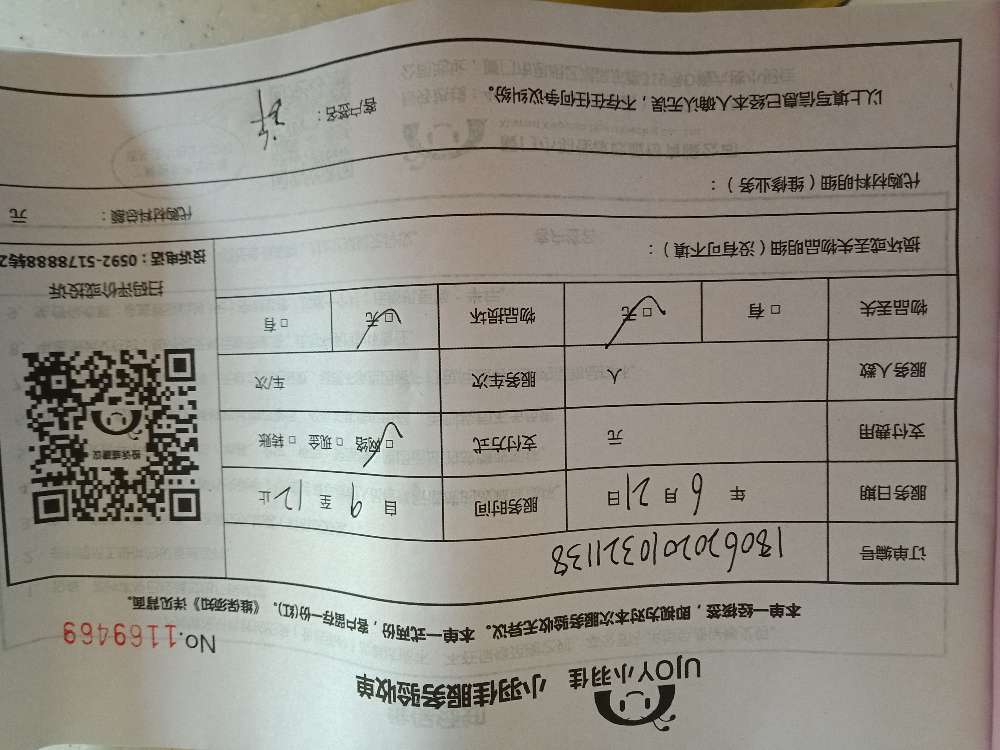 UJOY小羽佳 小羽佳服务验收单
No.1169469
本单一经核签，即视为对本次服务验收无异议。 本单一式两份，客户留存一份(红)。《维保须知》详见背面。
订单编号 18062020103211138
服务日期 年 6 月 21 日 服务时间 自 9 至 12 止
支付费用 元 支付方式 □网络 □现金 □转账
服务人数 人 服务车次 车/次
物品丢失 □有 □无 物品损坏 □无 □有
投诉或建议
扫码评价或投诉
投诉电话：0592-5178888转2
损坏或丢失物品明细（没有可不填）：
代购材料明细（维修业务）：
代购材料总额： 元
以上填写信息已经本人确认无误，不存在任何争议纠纷。 客户签名： 许